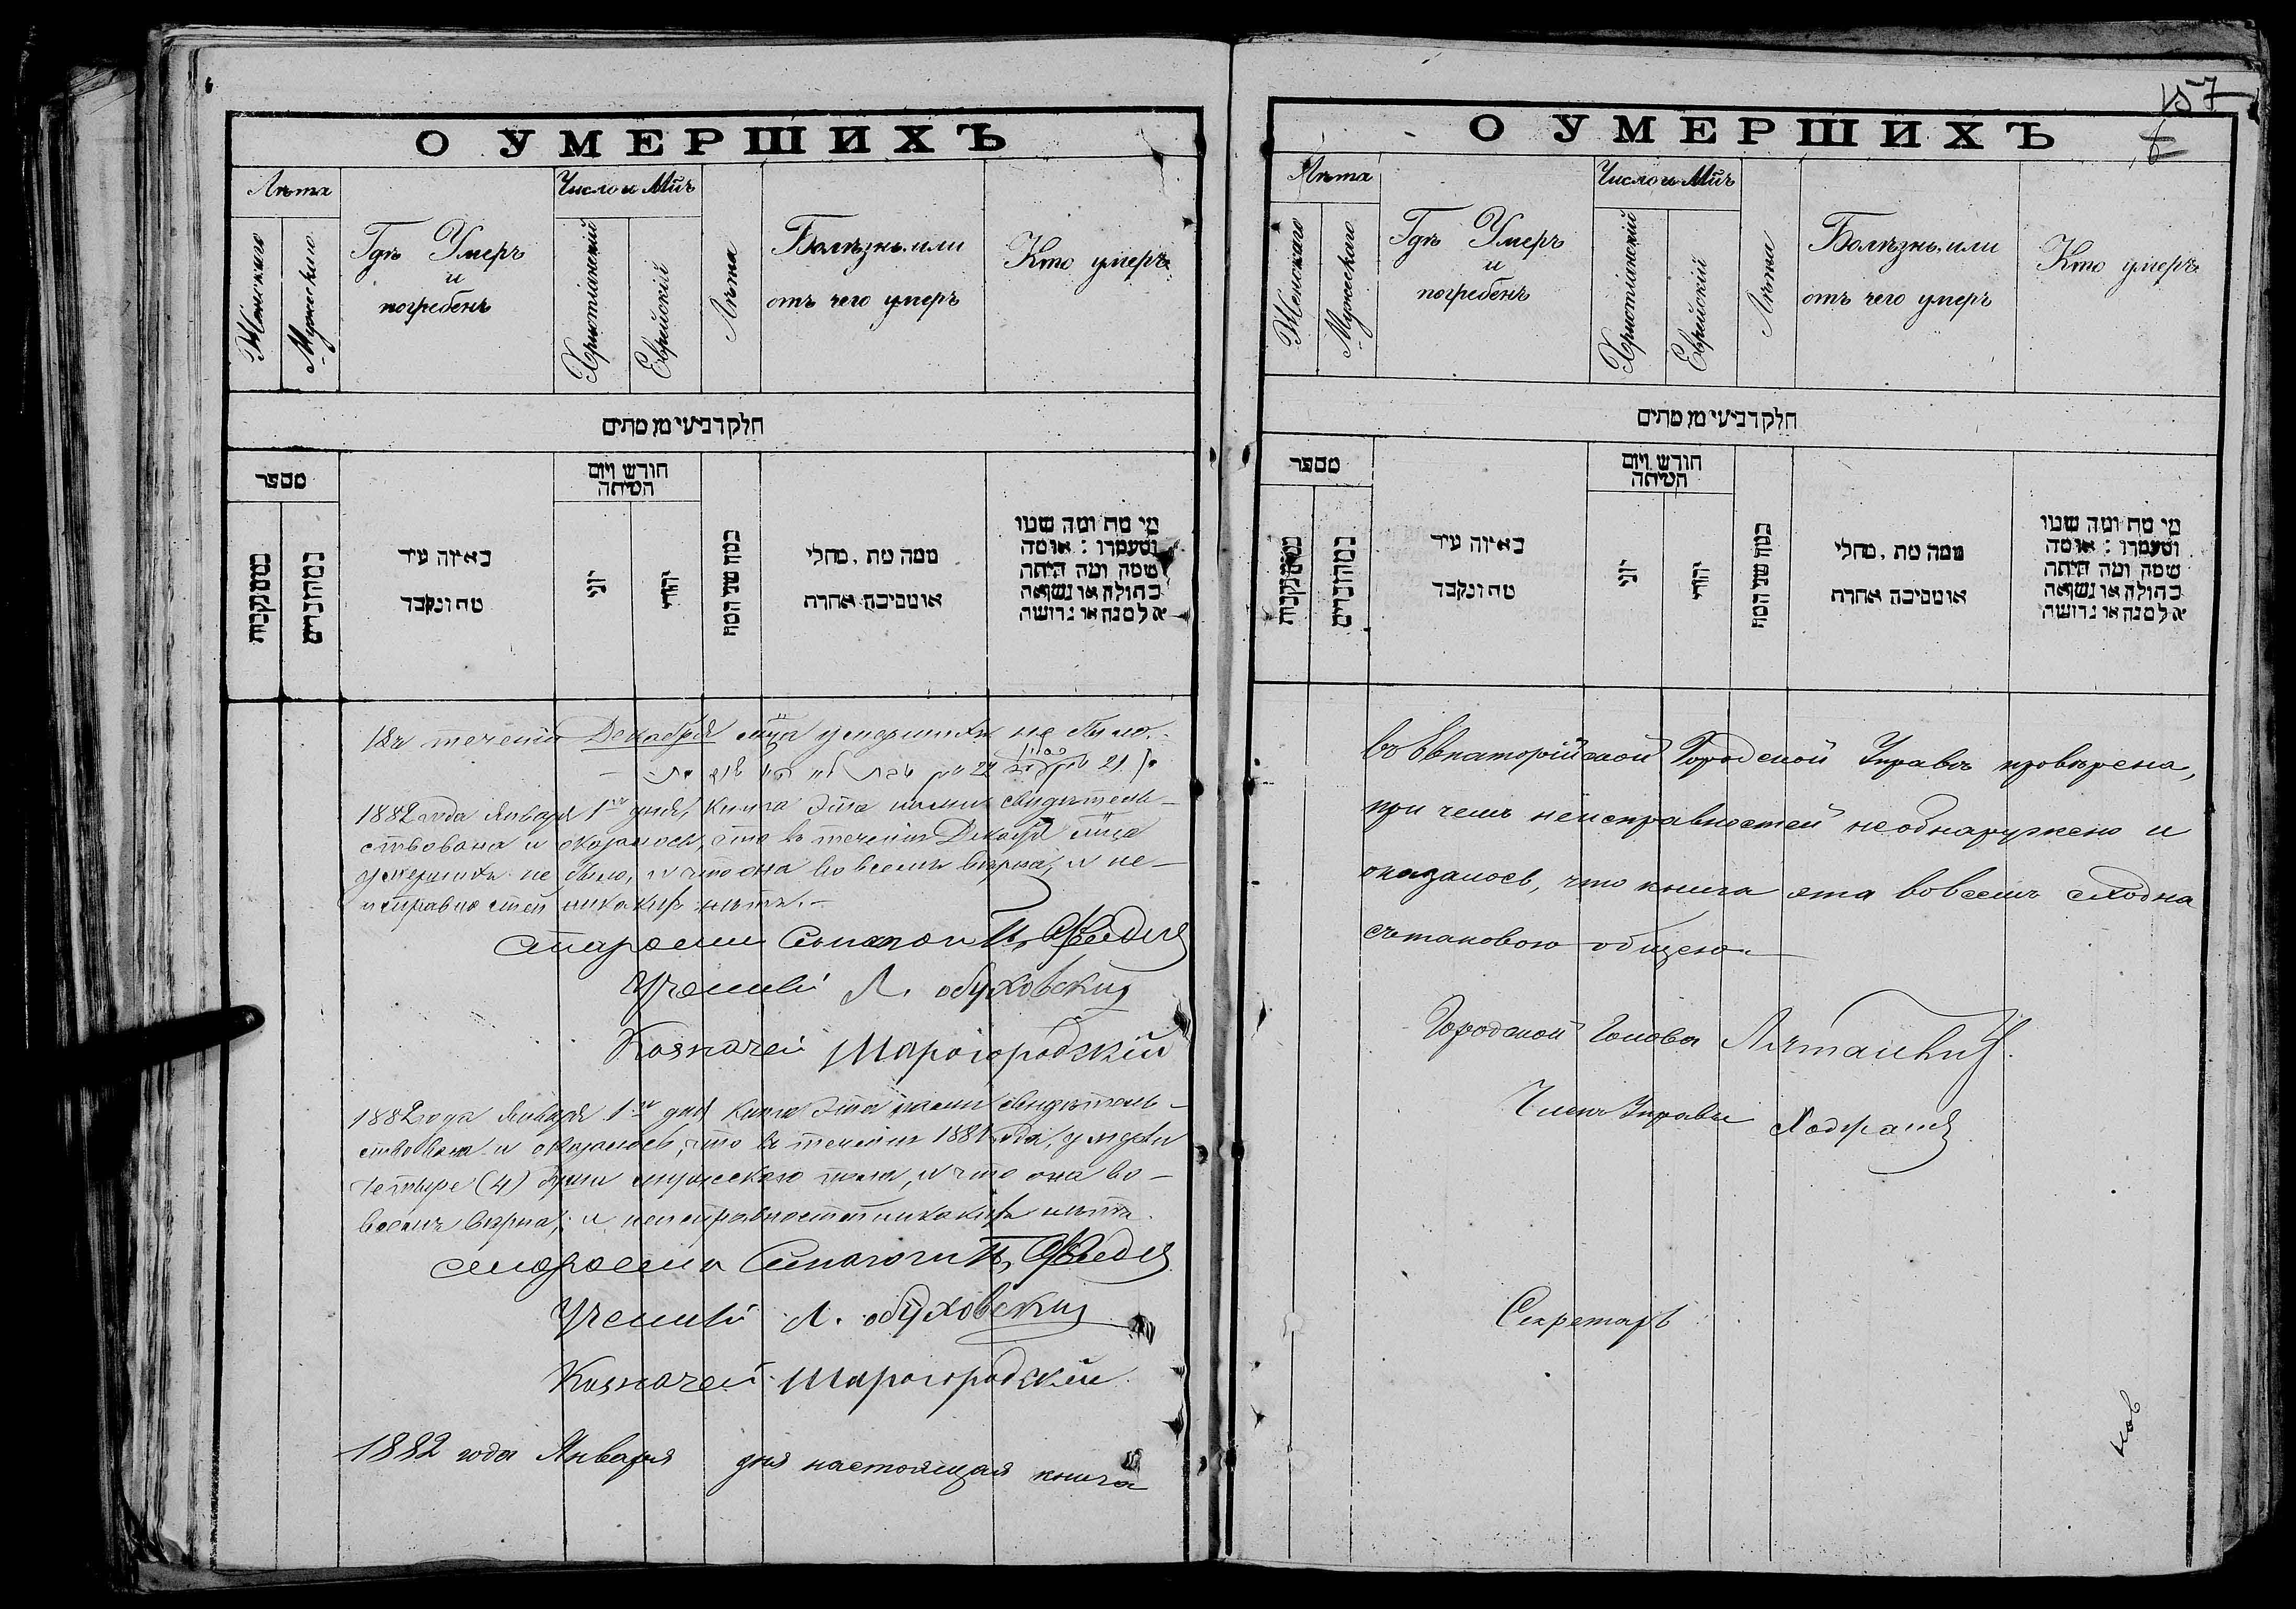 О УМЕРШИХЪ
Лѣта
Женскаго
Мужескаго
Гдѣ Умеръ
и
погребенъ
Число и Мцъ
Християнскій
Еврейскій
Лѣта
Болѣзнь или
отъ чего умеръ
Кто умеръ
חלק רביעי מן מתים
מספר
ממקבות
מהזכרים
באיזה עיר
מת ונקבר
חודש ויום
המיתה
יוני
יהודי
כמה שני המת
ממה מת, מחלי
או מסיבה אחרת
מי מת ומה שמו
ומעמדו : או מה
שמה ומה היתה
בתולה או נשואה
אלמנה או גרושה
Въ теченіи Декабря мца умершихъ не было.
1882 года Января 1го дня, Книга эта нами свидѣтель-
ствована и оказалось, что въ теченіи Декабря мца
умершихъ не было, и что она во всемъ вѣрна, и не-
исправностей никакихъ нѣтъ.-
Староста Синагоги
Ученый Л. Обуховскій
Казначей Шарогородскій
1882 года Января 1го дня Книга эта нами свидѣтель-
ствована и оказалось, что въ теченіи 1881 года, умерли
четыре (4) души мужескаго пола, и что она во-
всемъ вѣрна, и неисправностей никакихъ нѣтъ.
Староста Синагоги
Ученый Л. Обуховскій
Казначей Шарогородскій
1882 года Января дня настоящая книга
157
О УМЕРШИХЪ
Лѣта
Женскаго
Мужескаго
Гдѣ Умеръ
и
погребенъ
Число и Мцъ
Християнскій
Еврейскій
Лѣта
Болѣзнь или
отъ чего умеръ
Кто умеръ
חלק רביעי מן מתים
מספר
ממקבות
מהזכרים
באיזה עיר
מת ונקבר
חודש ויום
המיתה
יוני
יהודי
כמה שני המת
ממה מת, מחלי
או מסיבה אחרת
מי מת ומה שמו
ומעמדו : או מה
שמה ומה היתה
בתולה או נשואה
אלמנה או גרושה
въ Евпаторійской Городской Управѣ провѣрена,
при чемъ неисправностей не обнаружено и
оказалось, что книга эта во всемъ сходна
съ таковою общею.
Городской Голова
Членъ Управы
Секретарь